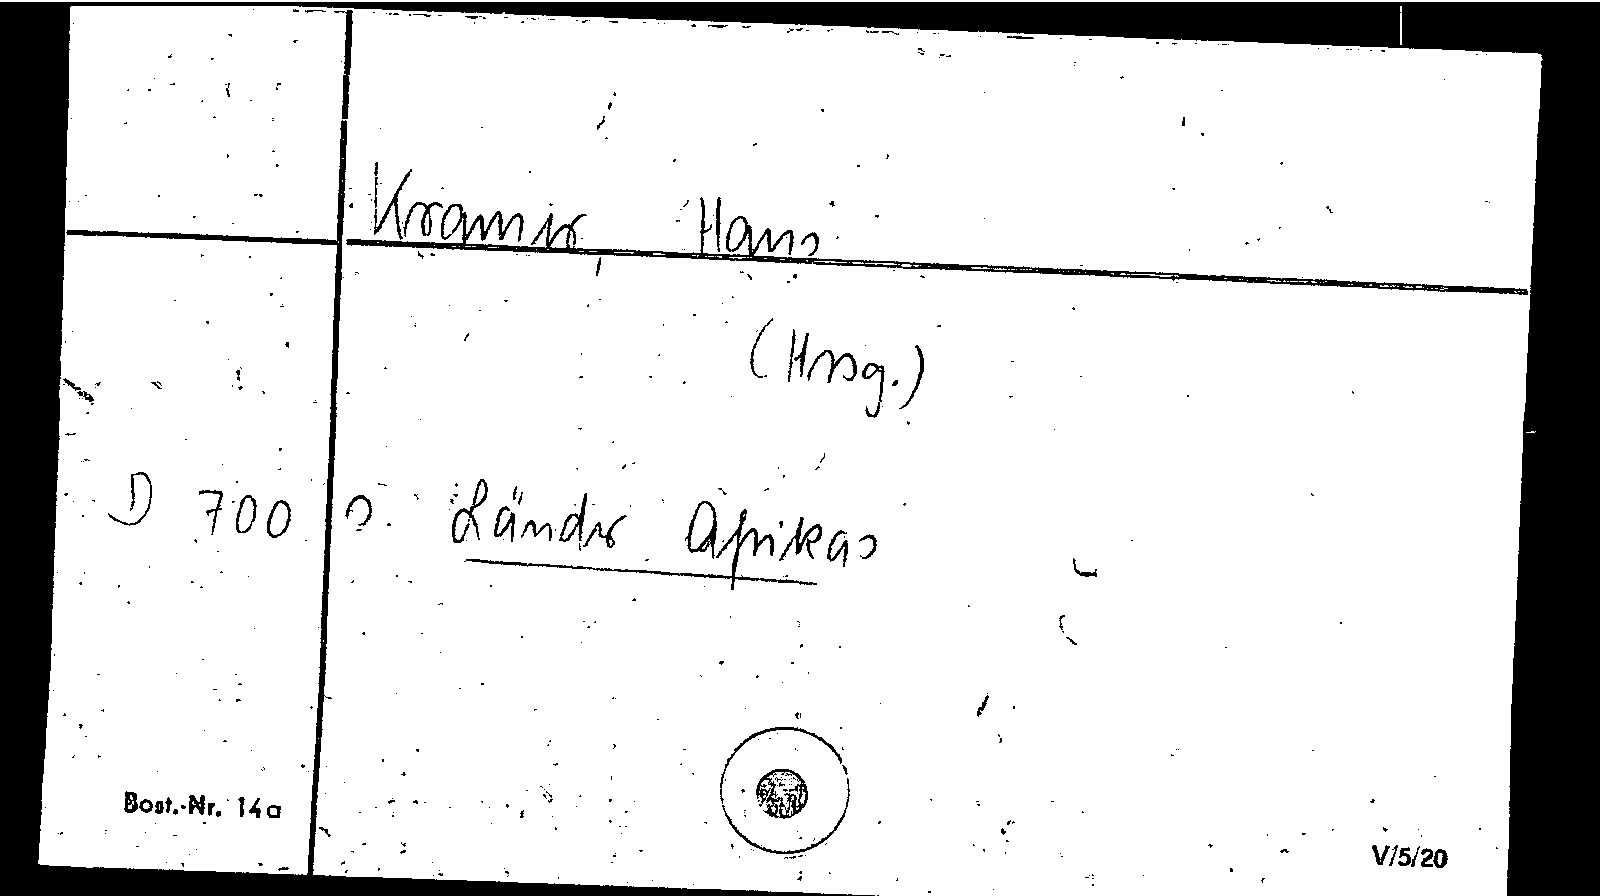 Kramer Hans
(Hrsg.)
D 700 s. Länder Afrikas
Best.-Nr. 14a
V/5/20